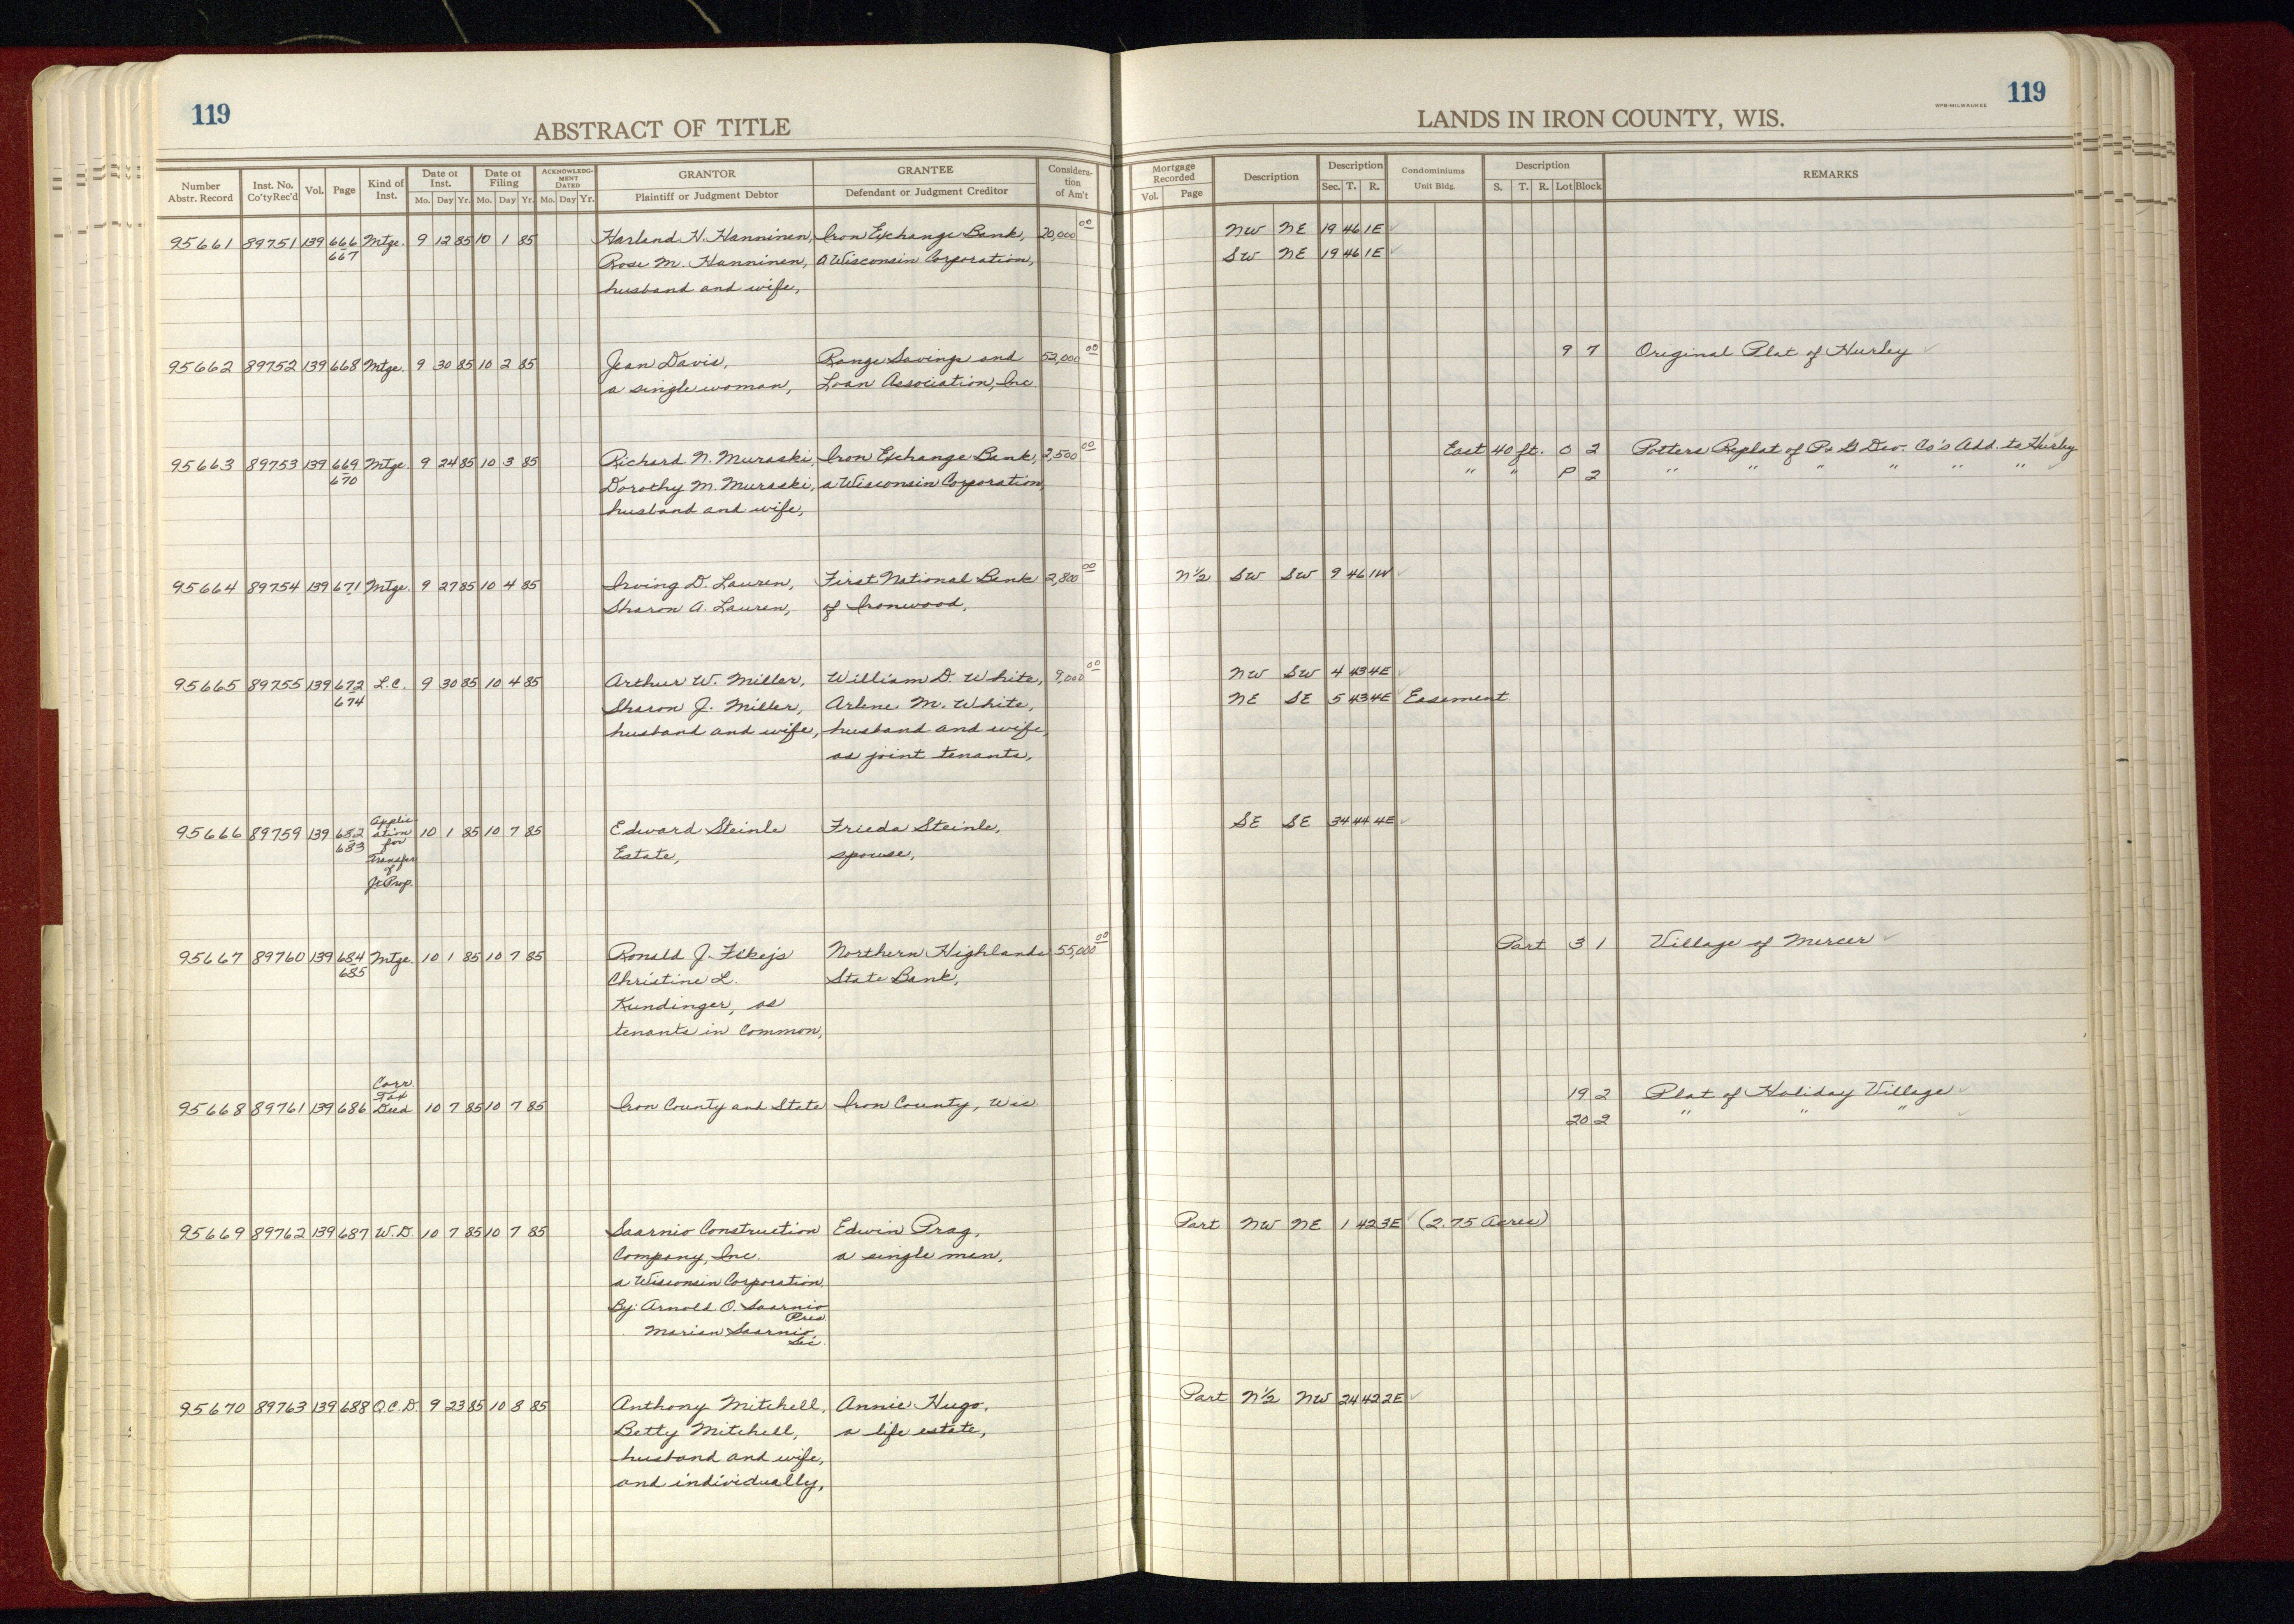 119
ABSTRACT OF TITLE
LANDS IN IRON COUNTY, WIS.
WPB-MILWAUKEE
119
Number Abstr. Record | Inst. No. Co'ty Rec'd | Vol. | Page | Kind of Inst. | Date of Inst. Mo. Day Yr. | Date of Filing Mo. Day Yr. | ACKNOWLEDGMENT DATED Mo. Day Yr. | GRANTOR Plaintiff or Judgment Debtor | GRANTEE Defendant or Judgment Creditor | Consideration of Am't | Mortgage Recorded Vol. Page | Description | Description Sec. T. R. | Condominiums Unit Bldg. | Description S. T. R. Lot Block | REMARKS
95661 89751 139 666 Mtge. 9 12 85 10 1 85 Harland H. Hanninen, Iron Exchange Bank, 20,000 00 NW NE 19 46 1E
667 Rose M. Hanninen, a Wisconsin Corporation, SW NE 19 46 1E
husband and wife,
95662 89752 139 668 Mtge. 9 30 85 10 2 85 Jean Davis, Range Savings and 52,000 00 9 7 Original Plat of Hurley
a single woman, Loan Association, Inc
95663 89753 139 669 Mtge. 9 24 85 10 3 85 Richard N. Muraski, Iron Exchange Bank, 2,500 00 East 40 ft. O 2 Potters Replat of P. & G Dev. Co's Add. to Hurley
670 Dorothy M. Muraski, a Wisconsin Corporation, " " P 2 " " " " " "
husband and wife,
95664 89754 139 671 Mtge. 9 27 85 10 4 85 Irving D. Lauren, First National Bank 2,800 00 N½ SW SW 9 46 1W
Sharon A. Lauren, of Ironwood,
95665 89755 139 672 L.C. 9 30 85 10 4 85 Arthur W. Miller, William D. White, 9,000 00 NW SW 4 43 4E
674 Sharon J. Miller, Arlene M. White, NE SE 5 43 4E Easement
husband and wife, husband and wife,
as joint tenants,
95666 89759 139 682 Application for Transfer of Jt Prop. 10 1 85 10 7 85 Edward Steinle Frieda Steinle, SE SE 34 44 4E
683 Estate, spouse,
95667 89760 139 684 Mtge. 10 1 85 10 7 85 Ronald J. Northern Highlands 55,000 00 Part 3 1 Village of Mercer
685 Christine L. State Bank,
Kundinger, as
tenants in common,
95668 89761 139 686 Corr. Tax Deed 10 7 85 10 7 85 Iron County and State Iron County, Wis 19 2 Plat of Holiday Village
20 2 " " "
95669 89762 139 687 W.D. 10 7 85 10 7 85 Saarnio Construction Edwin Prag, Part NW NE 1 42 3E (2.75 Acres)
Company, Inc. a single man,
a Wisconsin Corporation
By: Arnold O. Saarnio
Pres.
Marian Saarnio,
Sec.
95670 89763 139 688 Q.C.D. 9 23 85 10 8 85 Anthony Mitchell, Annie Hugo, Part N½ NW 24 42 2E
Betty Mitchell, a life estate,
husband and wife,
and individually,